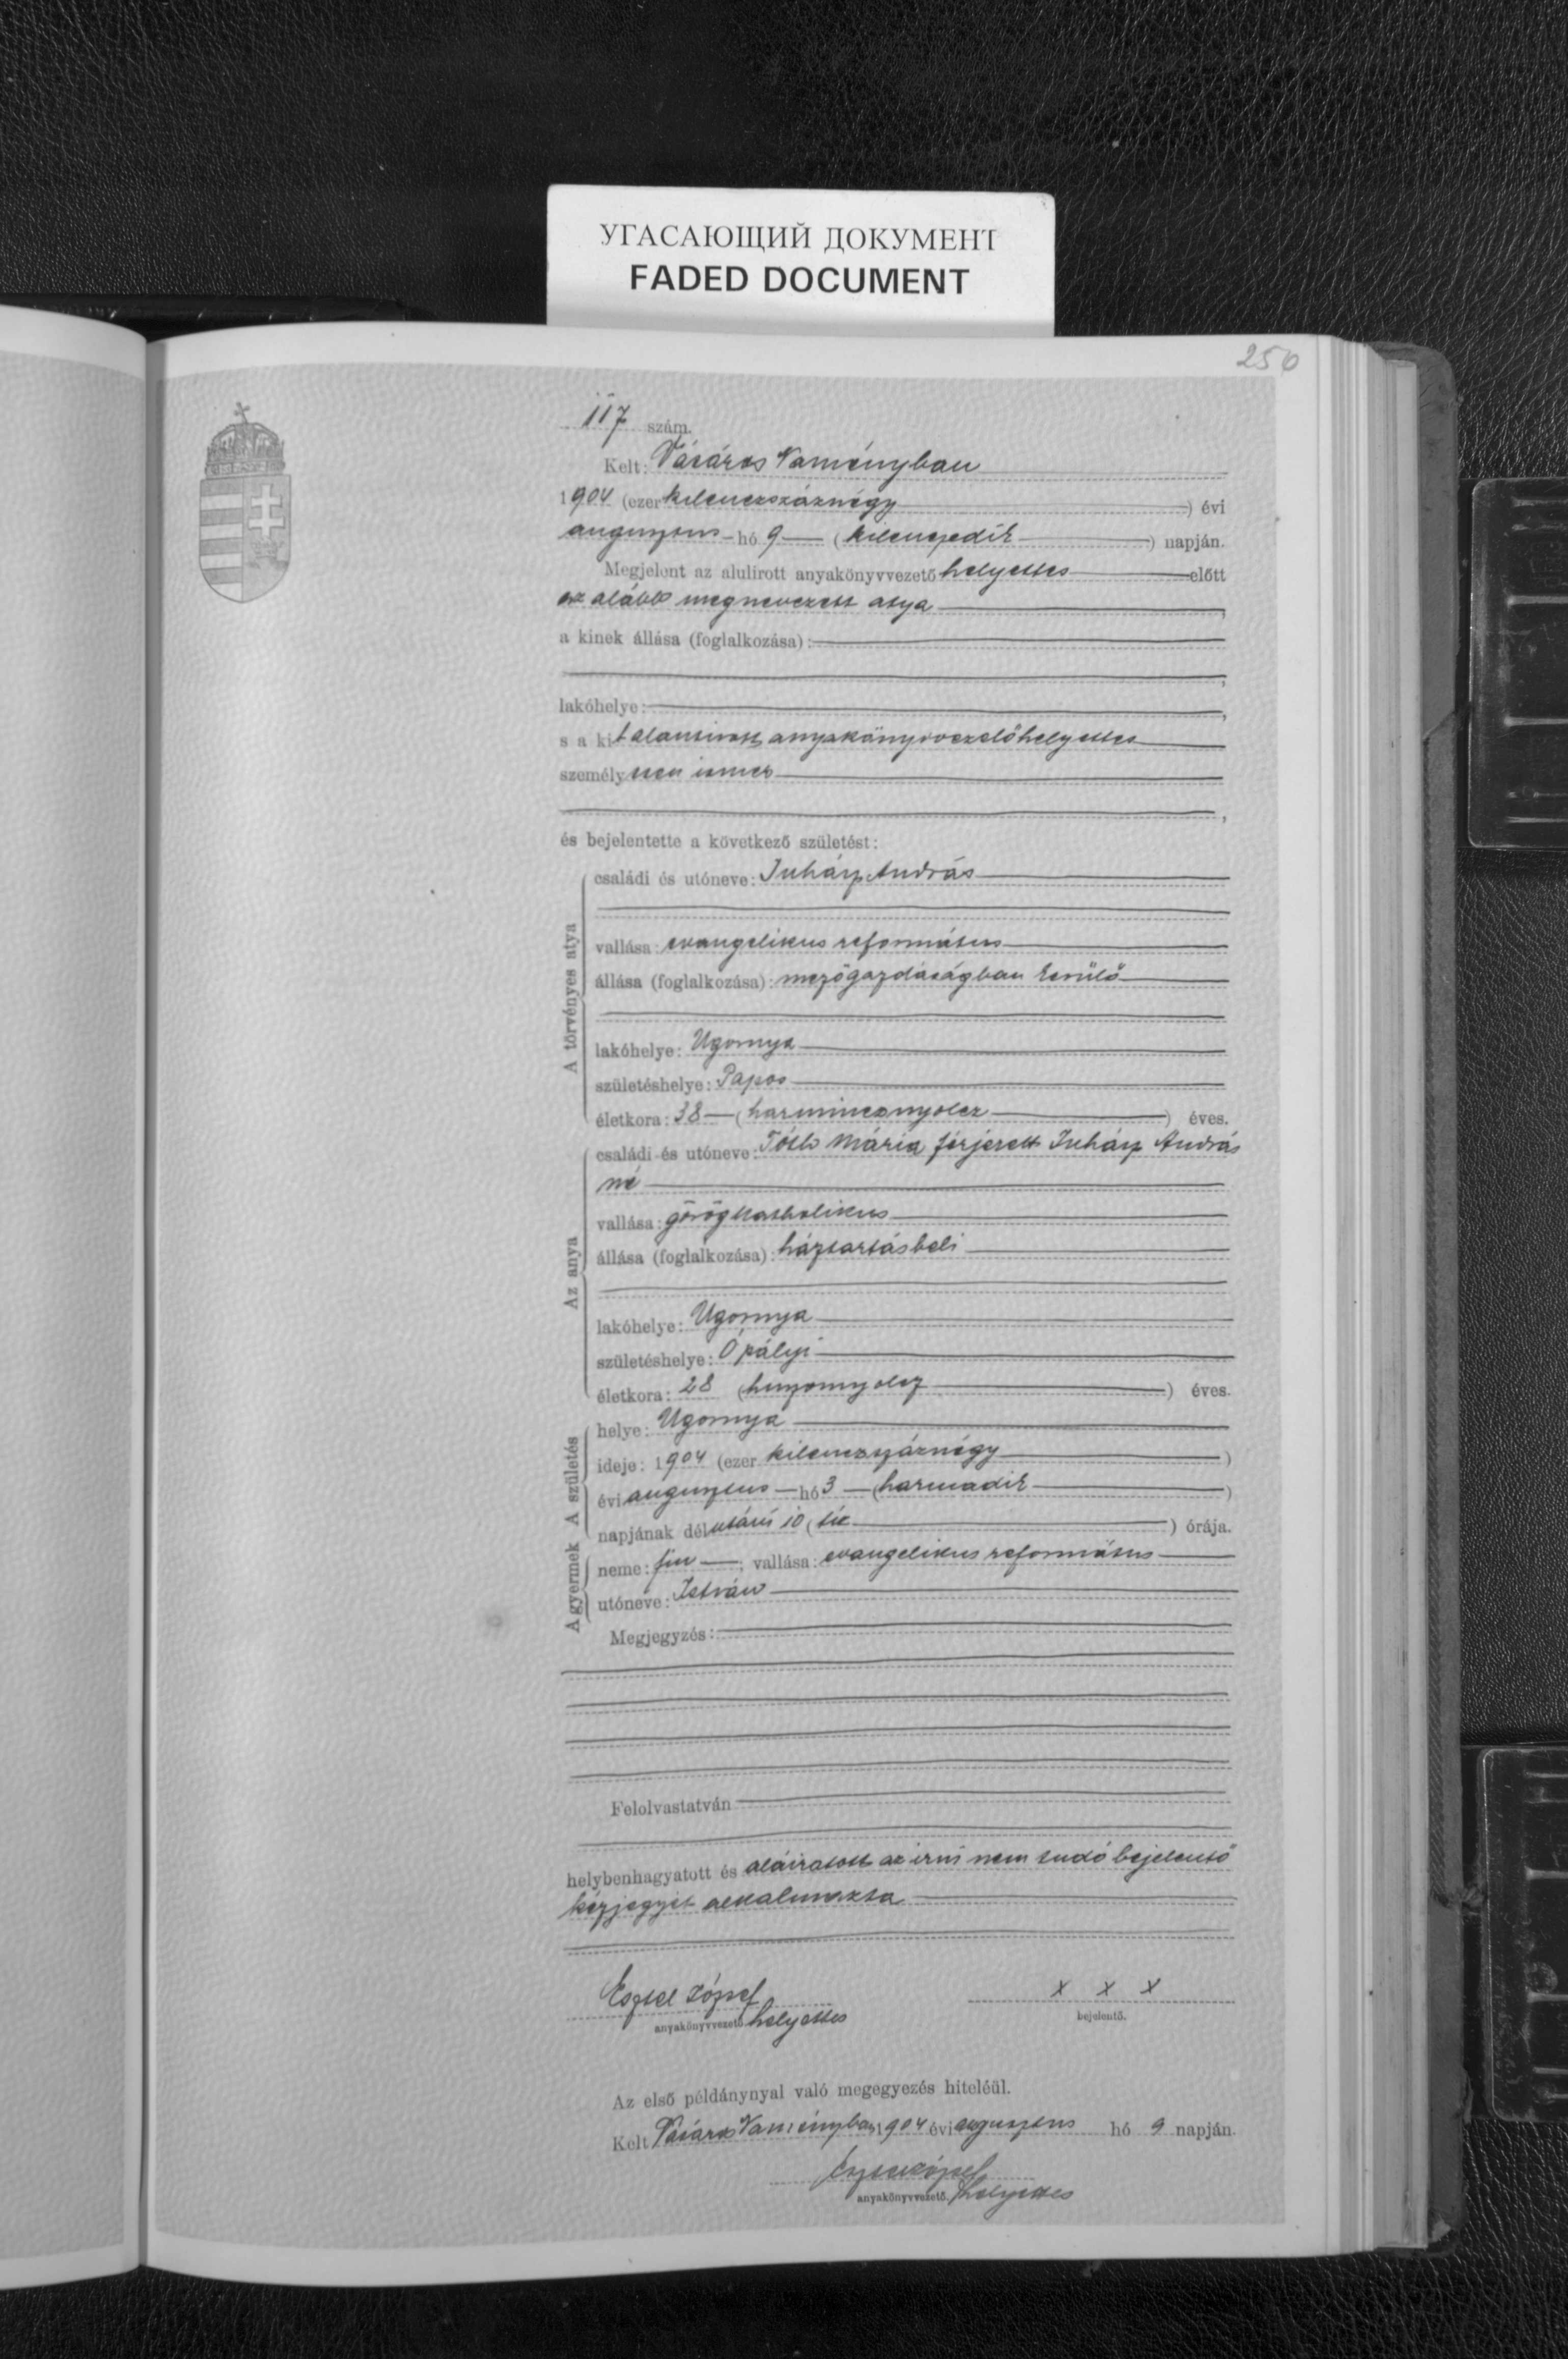 УГАСАЮЩИЙ ДОКУМЕНТ
FADED DOCUMENT
250
117 szám.
Kelt: Vásáros Naményban
1904 (ezer kilenczszáznégy) évi
augusztus hó 9 (kilenczedik) napján.
Megjelent az alulirott anyakönyvvezető helyettes előtt
az alább megnevezett atya,
a kinek állása (foglalkozása):
,
lakóhelye: ,
s a kit alantirott anyakönyvvezetőhelyettes
személyesen ismer
,
és bejelentette a következő születést:
A törvényes atya
családi és utóneve: Juhász András
vallása: evangelikus református
állása (foglalkozása): mezőgazdaságban
lakóhelye: Ugornya
születéshelye: Papos
életkora: 38 (harmincznyolcz) éves.
Az anya
családi és utóneve: Tóth Mária férjezett Juhász András
né
vallása: görögkatholikus
állása (foglalkozása): háztartásbeli
lakóhelye: Ugornya
születéshelye: Ópályi
életkora: 28 (huszonnyolcz) éves.
A születés
helye: Ugornya
ideje: 1904 (ezer kilenczszáznégy)
évi augusztus hó 3 (harmadik)
napjának délutáni 10 (tíz) órája.
A gyermek
neme: fiu; vallása: evangelikus református
utóneve: István
Megjegyzés:
Felolvastatván
helybenhagyatott és aláiratott az irni nem tudó bejelentő
kézjegyét alkalmazta
Esztel József x x x
anyakönyvvezető helyettes bejelentő.
Az első példánynyal való megegyezés hiteléül.
Kelt Vásáros Naményban 1904 évi augusztus hó 9 napján.
Esztel József
anyakönyvvezető helyettes